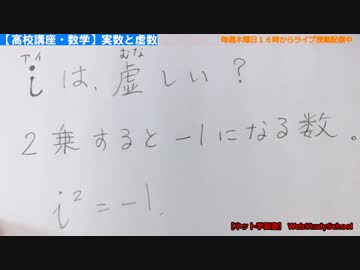 【高校講座・数学】実数と虚数
毎週木曜日16時からライブ授業配信中
アイ むな
iは、虚しい?
2乗すると-1になる数。
i²=-1.
【ネット学習塾】 WebStudySchool